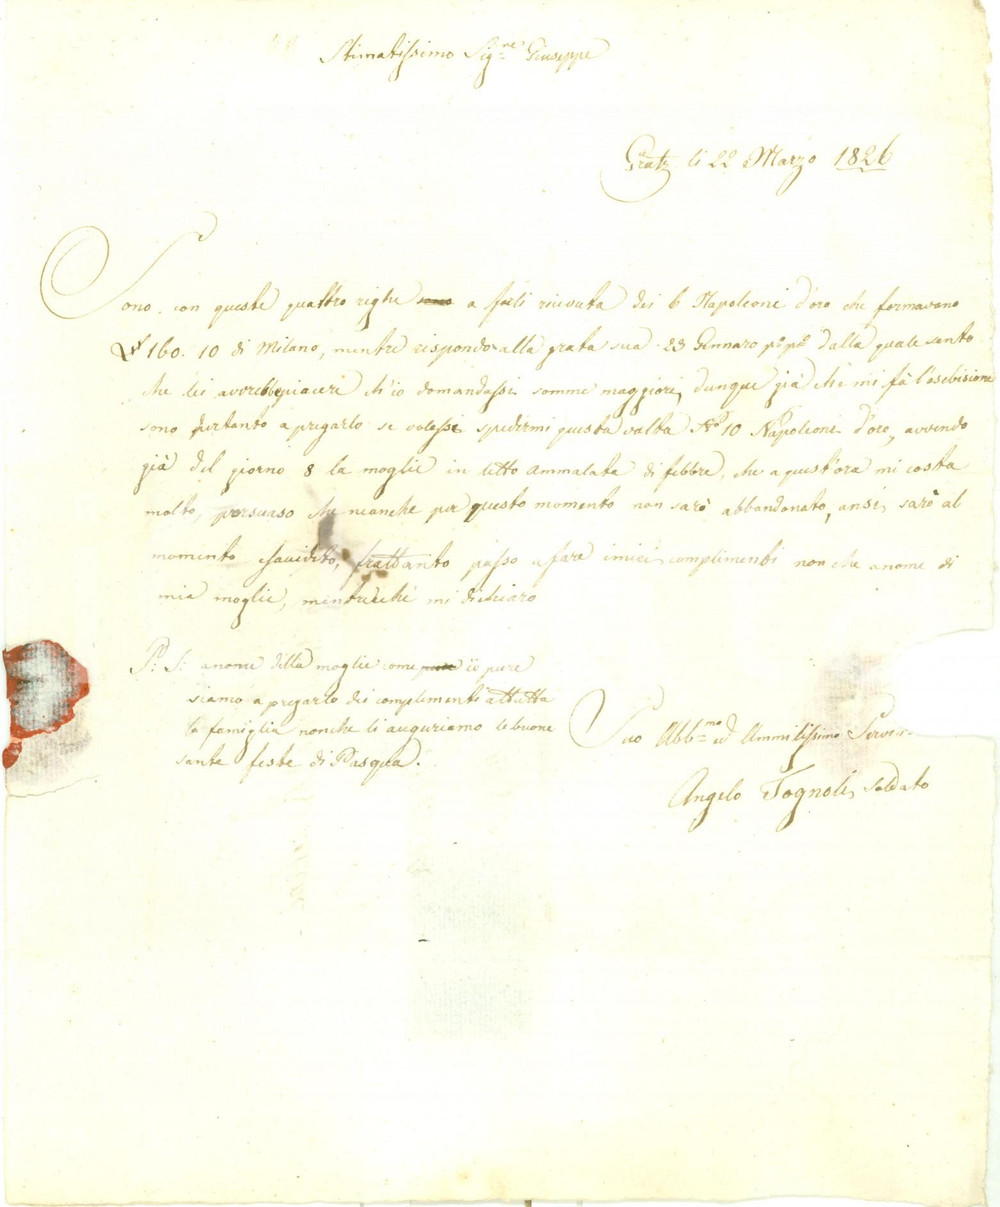 Stimatissimo Sig.re Giuseppe
Gratz li 22 Marzo 1826
Sono con queste quattro righe a farli ricevuta dei 6 Napoleoni d'oro che formavano
160. 10 di Milano, mentre rispondo alla grata sua 23 Gennaro p.o p.o dalla quale sento
che lei avrebbe piacere ch'io domandassi somme maggiori, dunque già che mi fà l'esebisione
sono pertanto a pregarlo se volesse spedirmi questa volta N.o 10 Napoleoni d'oro, avvendo
già del giorno 8 la moglie in letto ammalata di febbre, che a quest'ora mi costa
molto, persuaso che neanche per questo momento non sarò abbandonato, ansi sarò al
momento esaudito, frattanto passo a fare i miei complimenti non che anome di
mia moglie, mentrecché mi dichiaro
P: S: anome della moglie come io pure
siamo a pregarlo dei complimenti a tutta
la famiglia nonche li auguriamo le buone
sante feste di Pasqua.
Suo Abb.mo ed Ammilissimo Servi
Angelo Tognoli, soldato